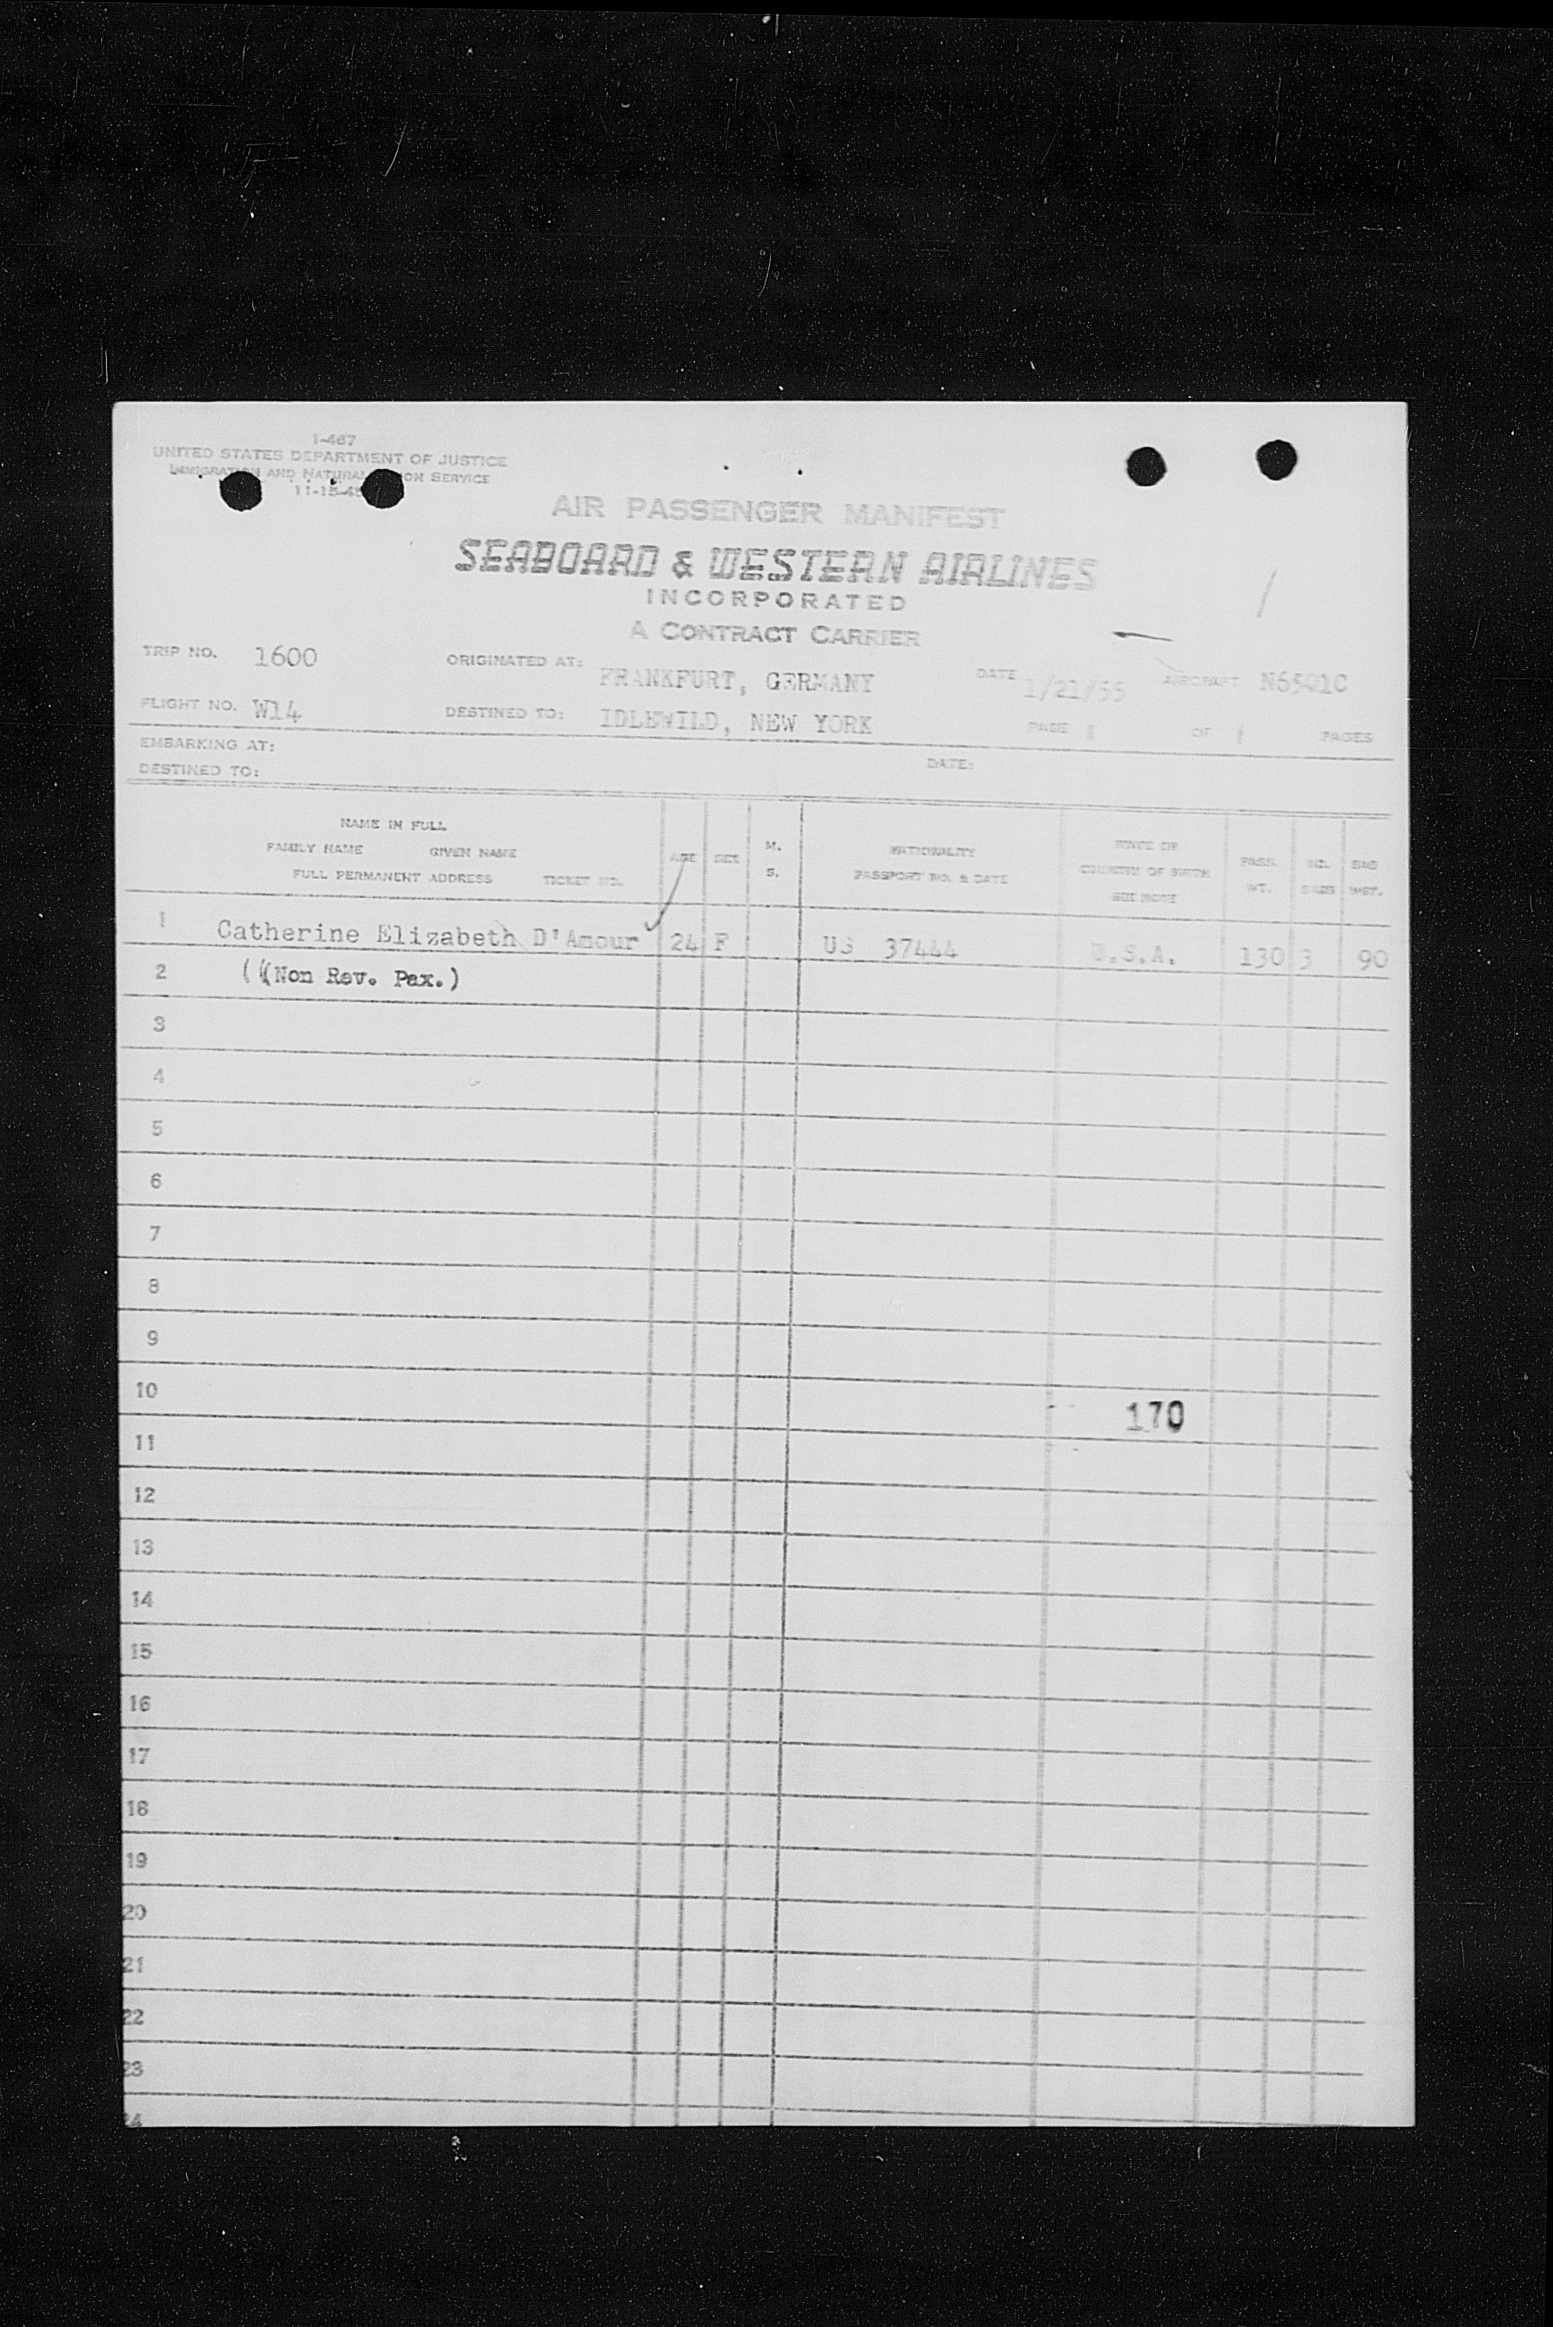 I-467
UNITED STATES DEPARTMENT OF JUSTICE
IMMIGRATION AND NATURALIZATION SERVICE
11-15-45
AIR PASSENGER MANIFEST
SEABOARD & WESTERN AIRLINES
INCORPORATED
A CONTRACT CARRIER
TRIP NO. 1600 ORIGINATED AT: FRANKFURT, GERMANY DATE 1/21/55 AIRCRAFT N6501C
FLIGHT NO. W14 DESTINED TO: IDLEWILD, NEW YORK PAGE 1 OF 1 PAGES
EMBARKING AT:
DESTINED TO: DATE:
NAME IN FULL
FAMILY NAME GIVEN NAME
FULL PERMANENT ADDRESS TICKET NO.
AGE SEX M. S.
NATIONALITY
PASSPORT NO. & DATE
STATE OR
COUNTRY OF BIRTH
SEE NOTE
PASS. WT.
NO. BAGS
BAG WGT.
1 Catherine Elizabeth D'Amour 24 F US 37444 U.S.A. 130 3 90
2 (((Non Rev. Pax.)
3
4
5
6
7
8
9
10 170
11
12
13
14
15
16
17
18
19
20
21
22
23
24